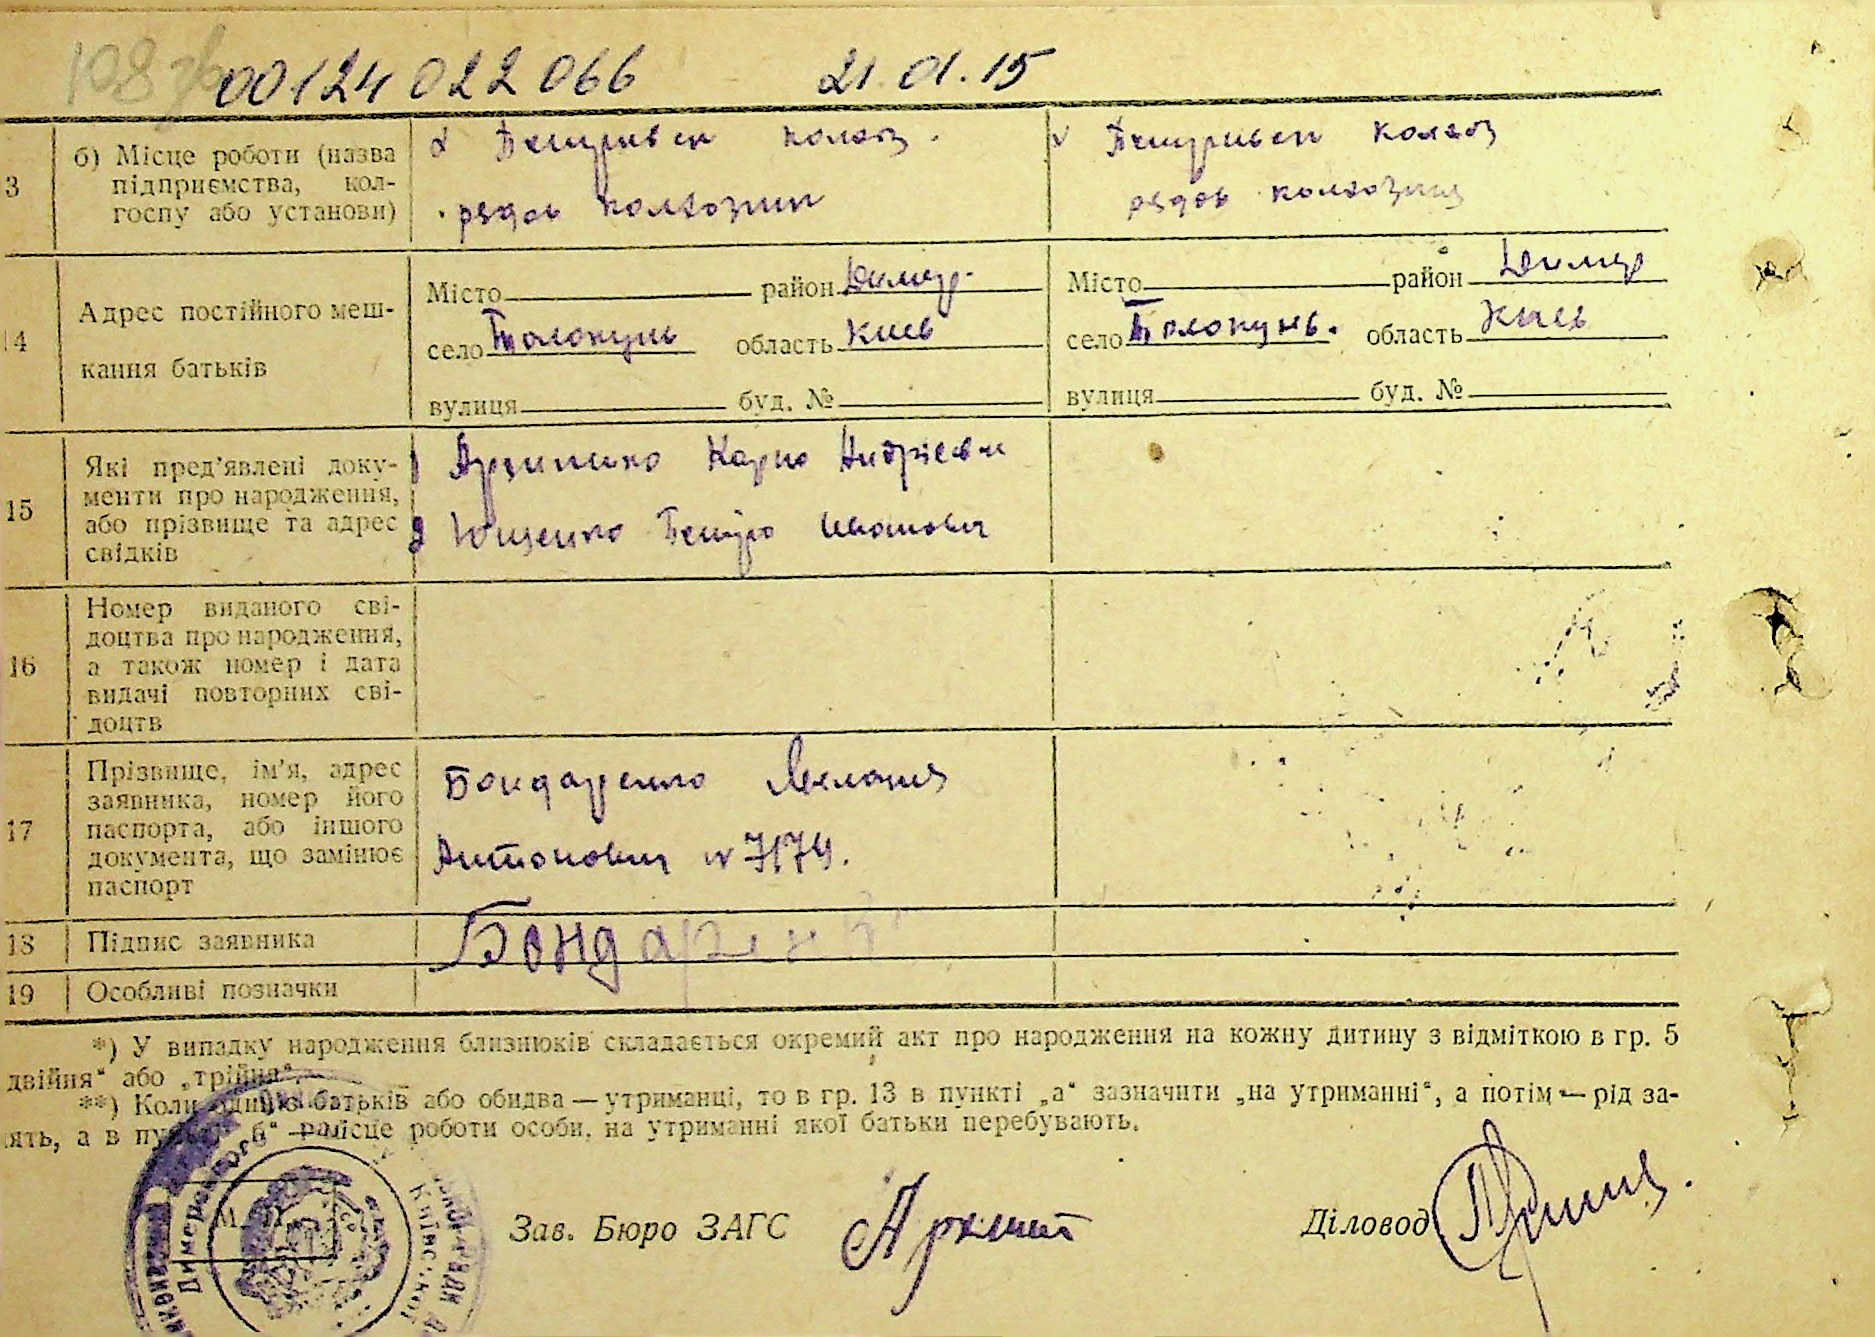 108 зв 00124 022 066 21.01.15
3
б) Місце роботи (назва
підприємства, кол-
госпу або установи)
колгоз.
рядов колхозник
колгоз
рядов колхозниц
14
Адрес постійного меш-
кання батьків
Місто район Димер.
село Толокунь область Киев
вулиця буд. №
Місто район Димер
село Толокунь. область Киев
вулиця буд. №
15
Які пред'явлені доку-
менти про народження,
або прізвище та адрес
свідків
Карпо Андрієви
Ющенко Петро Иванович
16
Номер виданого сві-
доцтва про народження,
а також номер і дата
видачі повторних сві-
доцтв
17
Прізвище, ім'я, адрес
заявника, номер його
паспорта, або іншого
документа, що замінює
паспорт
Бондаренко
Антонович № 7174.
18
Підпис заявника
Бондарен
19
Особливі позначки
*) У випадку народження близнюків складається окремий акт про народження на кожну дитину з відміткою в гр. 5
двійня“ або „трійня“.
**) Коли один з батьків або обидва — утриманці, то в гр. 13 в пункті „а“ зазначити „на утриманні“, а потім — рід за-
ять, а в пункті „б“ — місце роботи особи, на утриманні якої батьки перебувають.
М. П.
Київської
Зав. Бюро ЗАГС
Діловод